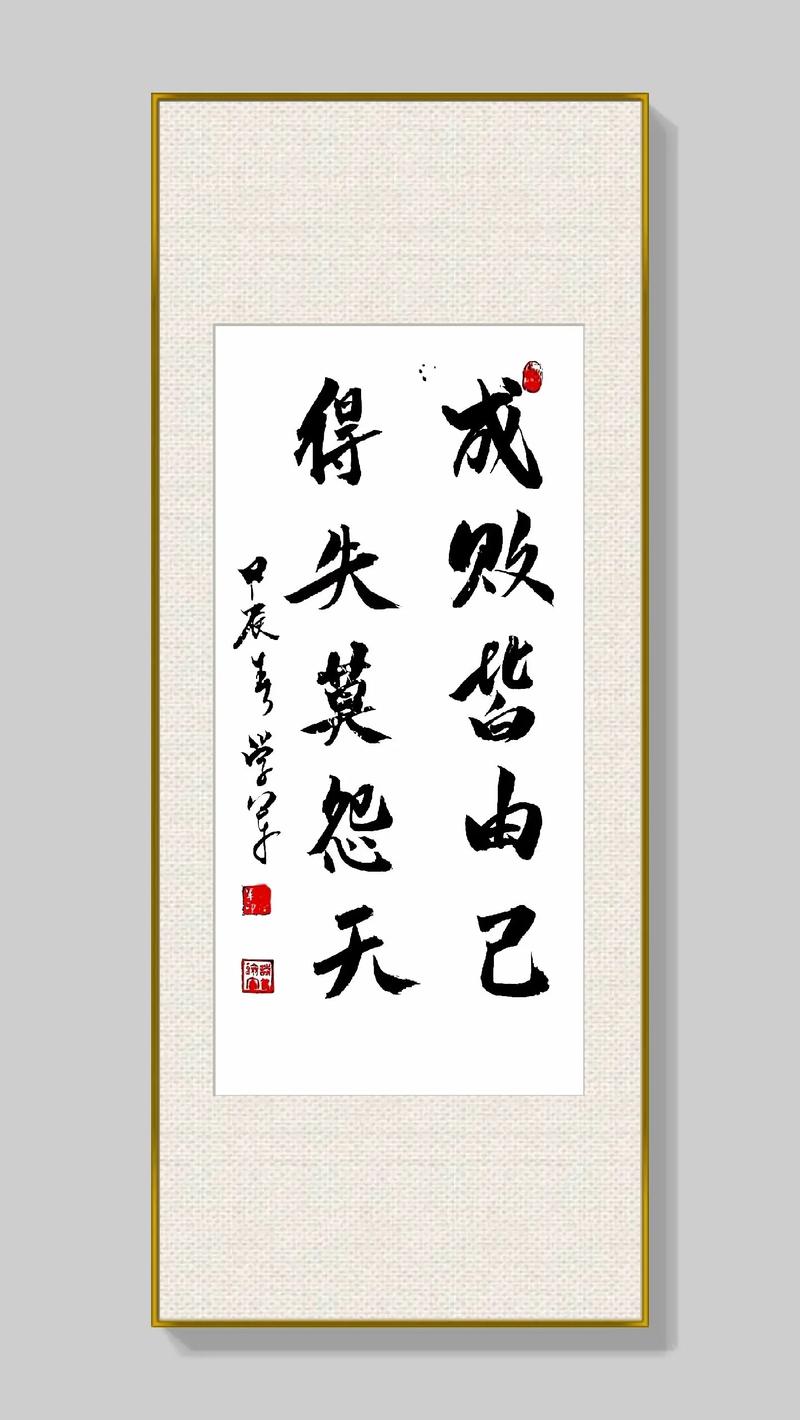 成败皆由己
得失莫怨天
甲辰春学军